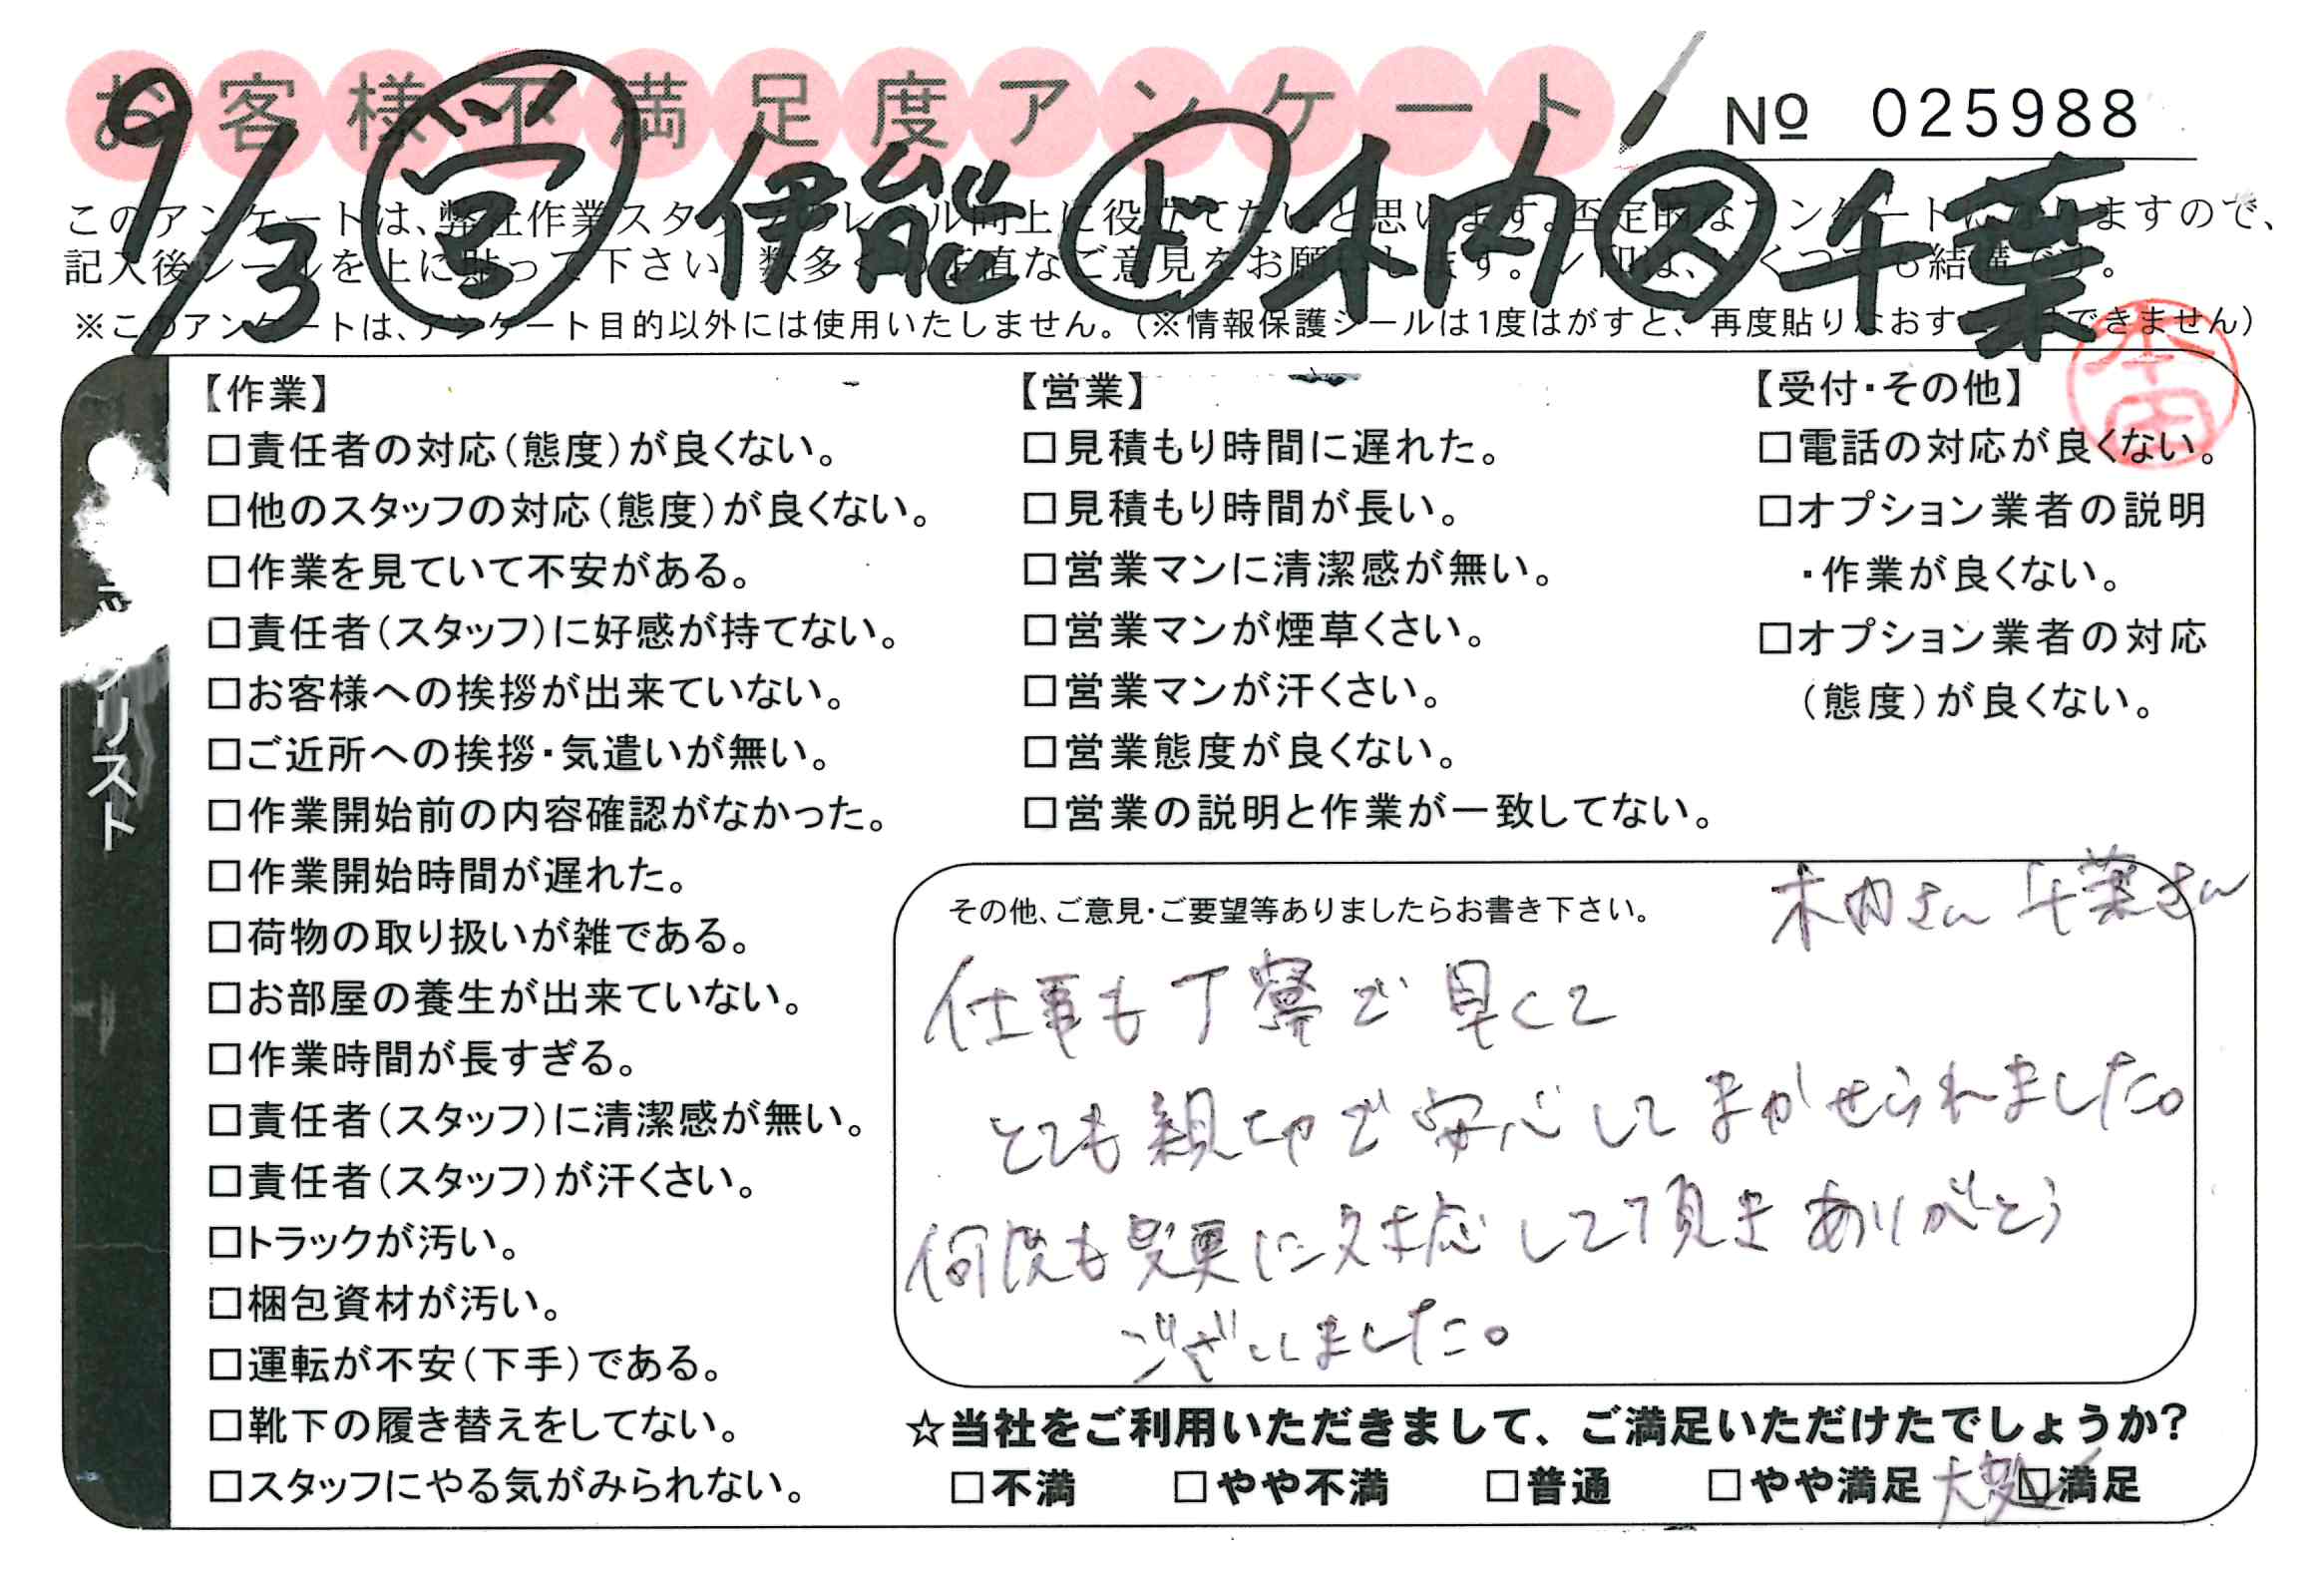 お客様不満足度アンケート
№ 025988
9/3 営 伊能 ド 木内 ス 千葉
このアンケートは、弊社作業スタッフのレベル向上に役立てたいと思います。否定的なアンケートになりますので、
記入後シールを上に貼って下さい。数多くの正直なご意見をお願いします。レ印は、いくつでも結構です。
※このアンケートは、アンケート目的以外には使用いたしません。(※情報保護シールは1度はがすと、再度貼りなおすことはできません)
リスト
【作業】
□責任者の対応(態度)が良くない。
□他のスタッフの対応(態度)が良くない。
□作業を見ていて不安がある。
□責任者(スタッフ)に好感が持てない。
□お客様への挨拶が出来ていない。
□ご近所への挨拶・気遣いが無い。
□作業開始前の内容確認がなかった。
□作業開始時間が遅れた。
□荷物の取り扱いが雑である。
□お部屋の養生が出来ていない。
□作業時間が長すぎる。
□責任者(スタッフ)に清潔感が無い。
□責任者(スタッフ)が汗くさい。
□トラックが汚い。
□梱包資材が汚い。
□運転が不安(下手)である。
□靴下の履き替えをしてない。
□スタッフにやる気がみられない。
【営業】
□見積もり時間に遅れた。
□見積もり時間が長い。
□営業マンに清潔感が無い。
□営業マンが煙草くさい。
□営業マンが汗くさい。
□営業態度が良くない。
□営業の説明と作業が一致してない。
【受付・その他】
□電話の対応が良くない。
□オプション業者の説明
・作業が良くない。
□オプション業者の対応
(態度)が良くない。
その他、ご意見・ご要望等ありましたらお書き下さい。
木内さん 千葉さん
仕事も丁寧で早くて
とても親切で安心してまかせられました。
何度も変更に対応して頂きありがとう
ございました。
☆当社をご利用いただきまして、ご満足いただけたでしょうか?
□不満 □やや不満 □普通 □やや満足 大変 ☑満足